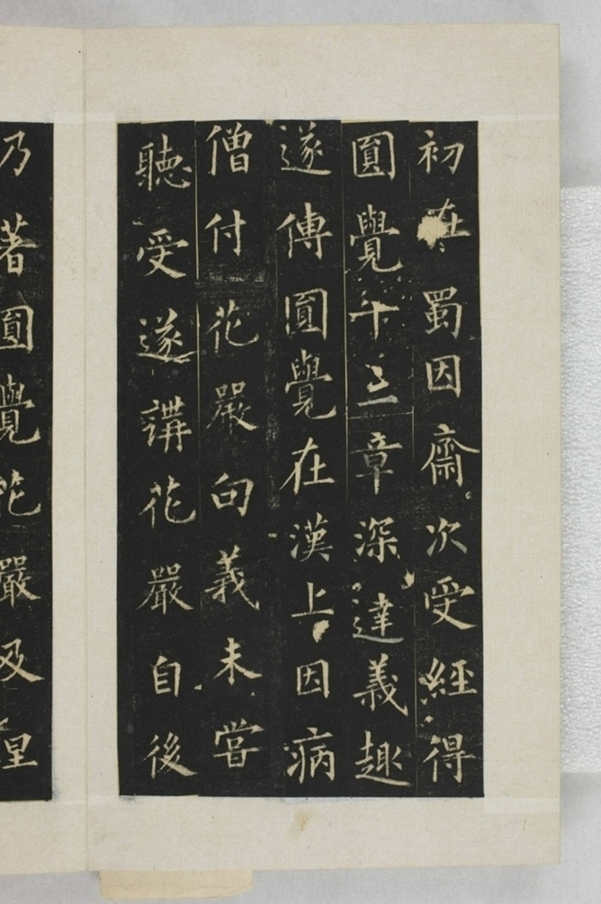 初在蜀因齋次受經得
圓覺十三章深達義趣
遂傳圓覺在漢上因病
僧付花嚴句義未嘗
聽受遂講花嚴自後
乃著圓覺花嚴及